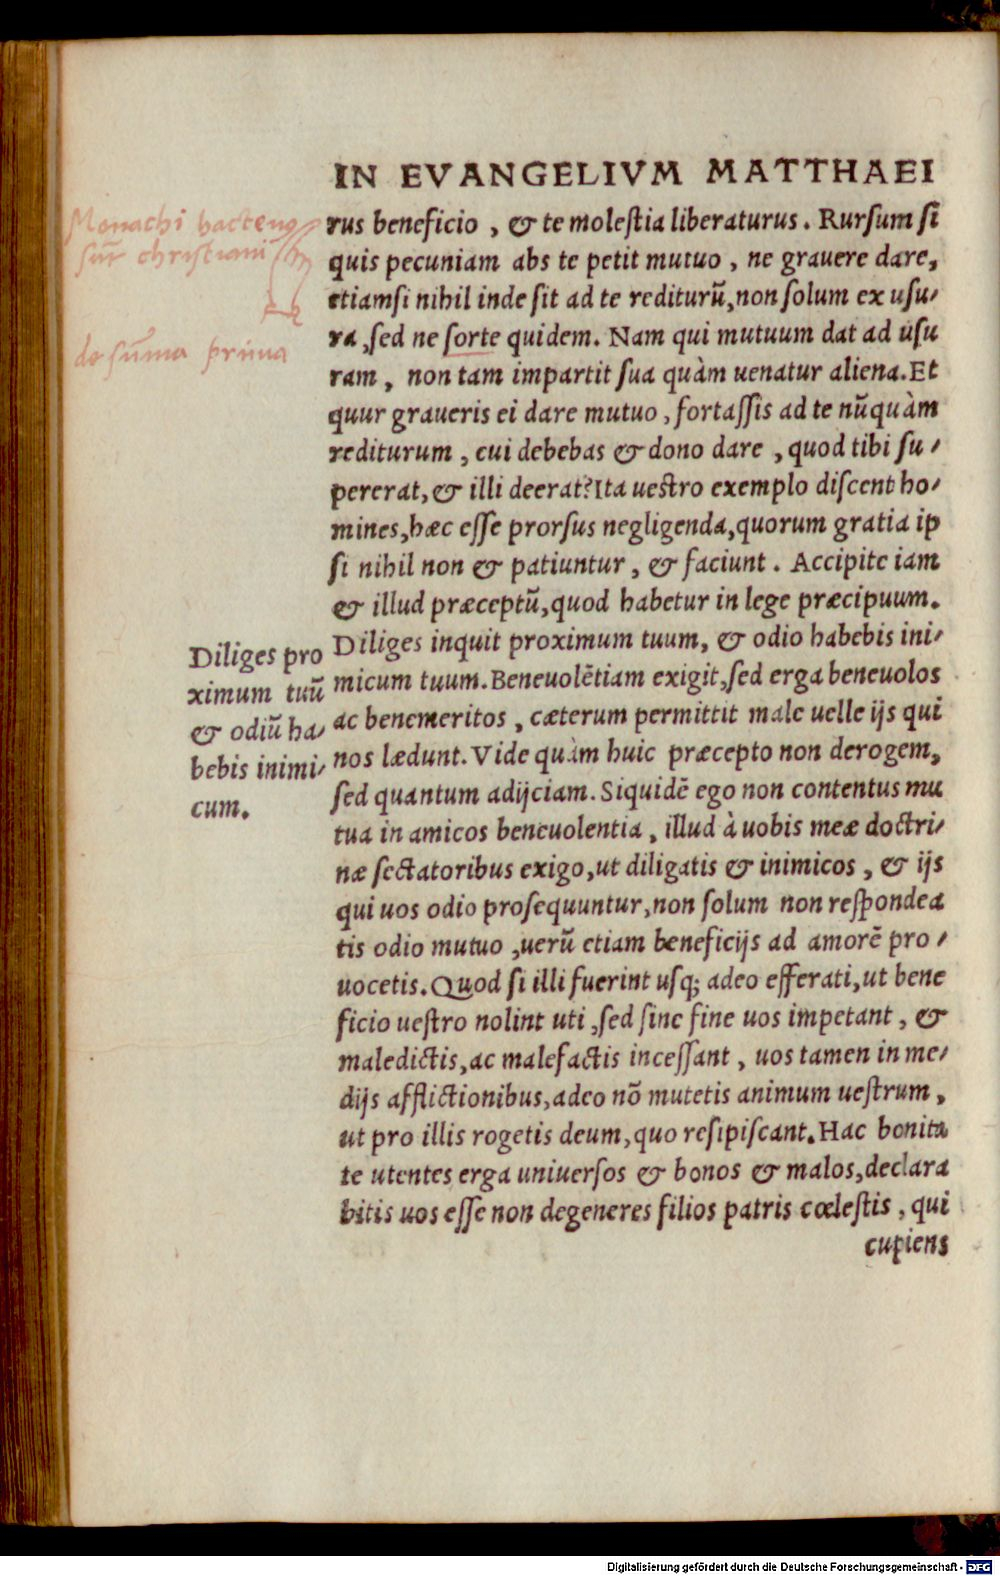 IN EVANGELIVM MATTHAEI
rus beneficio, & te molestia liberaturus. Rursum si
quis pecuniam abs te petit mutuo, ne grauere dare,
etiamsi nihil inde sit ad te rediturū, non solum ex usu⸗
ra, sed ne sorte quidem. Nam qui mutuum dat ad usu
ram, non tam impartit sua quàm uenatur aliena. Et
quur graueris ei dare mutuo, fortassis ad te nūquàm
rediturum, cui debebas & dono dare, quod tibi su⸗
pererat, & illi deerat? Ita uestro exemplo discent ho⸗
mines, hæc esse prorsus negligenda, quorum gratia ip
si nihil non & patiuntur, & faciunt. Accipite iam
& illud præceptū, quod habetur in lege præcipuum.
Diliges inquit proximum tuum, & odio habebis ini⸗
micum tuum. Beneuolētiam exigit, sed erga beneuolos
ac benemeritos, cæterum permittit male uelle ijs qui
nos lædunt. Vide quàm huic præcepto non derogem,
sed quantum adijciam. Siquidē ego non contentus mu
tua in amicos beneuolentia, illud à uobis meæ doctri⸗
næ sectatoribus exigo, ut diligatis & inimicos, & ijs
qui uos odio prosequuntur, non solum non respondea
tis odio mutuo, uerū etiam beneficijs ad amorē pro⸗
uocetis. Quod si illi fuerint usq; adeo efferati, ut bene
ficio uestro nolint uti, sed sine fine uos impetant, &
maledictis, ac malefactis incessant, uos tamen in me⸗
dijs afflictionibus, adeo nō mutetis animum uestrum,
ut pro illis rogetis deum, quo resipiscant. Hac bonita
te utentes erga uniuersos & bonos & malos, declara
bitis uos esse non degeneres filios patris cœlestis, qui
cupiens
Monachi hactenus
sūt christiani
de sūma prima
Diliges pro
ximum tuū
& odiū ha⸗
bebis inimi⸗
cum.
Digitalisierung gefördert durch die Deutsche Forschungsgemeinschaft - DFG